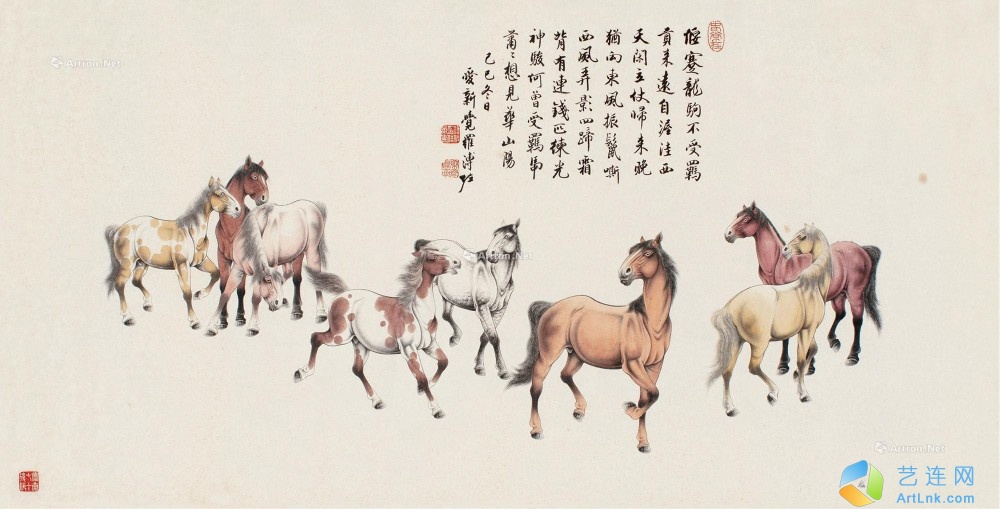 偃蹇龍駒不受羈
貢来遠自渥洼西
天閑立仗歸来晚
猶向東風振鬣嘶
西風弄影四蹄霜
背有連錢匹練光
神駿何曾受羈
蕭々想見華山陽
己巳冬日
愛新覺羅溥佐
Artron.Net
Artron.Net
Artron.Net
Artron.Net
艺连网
ArtLnk.com